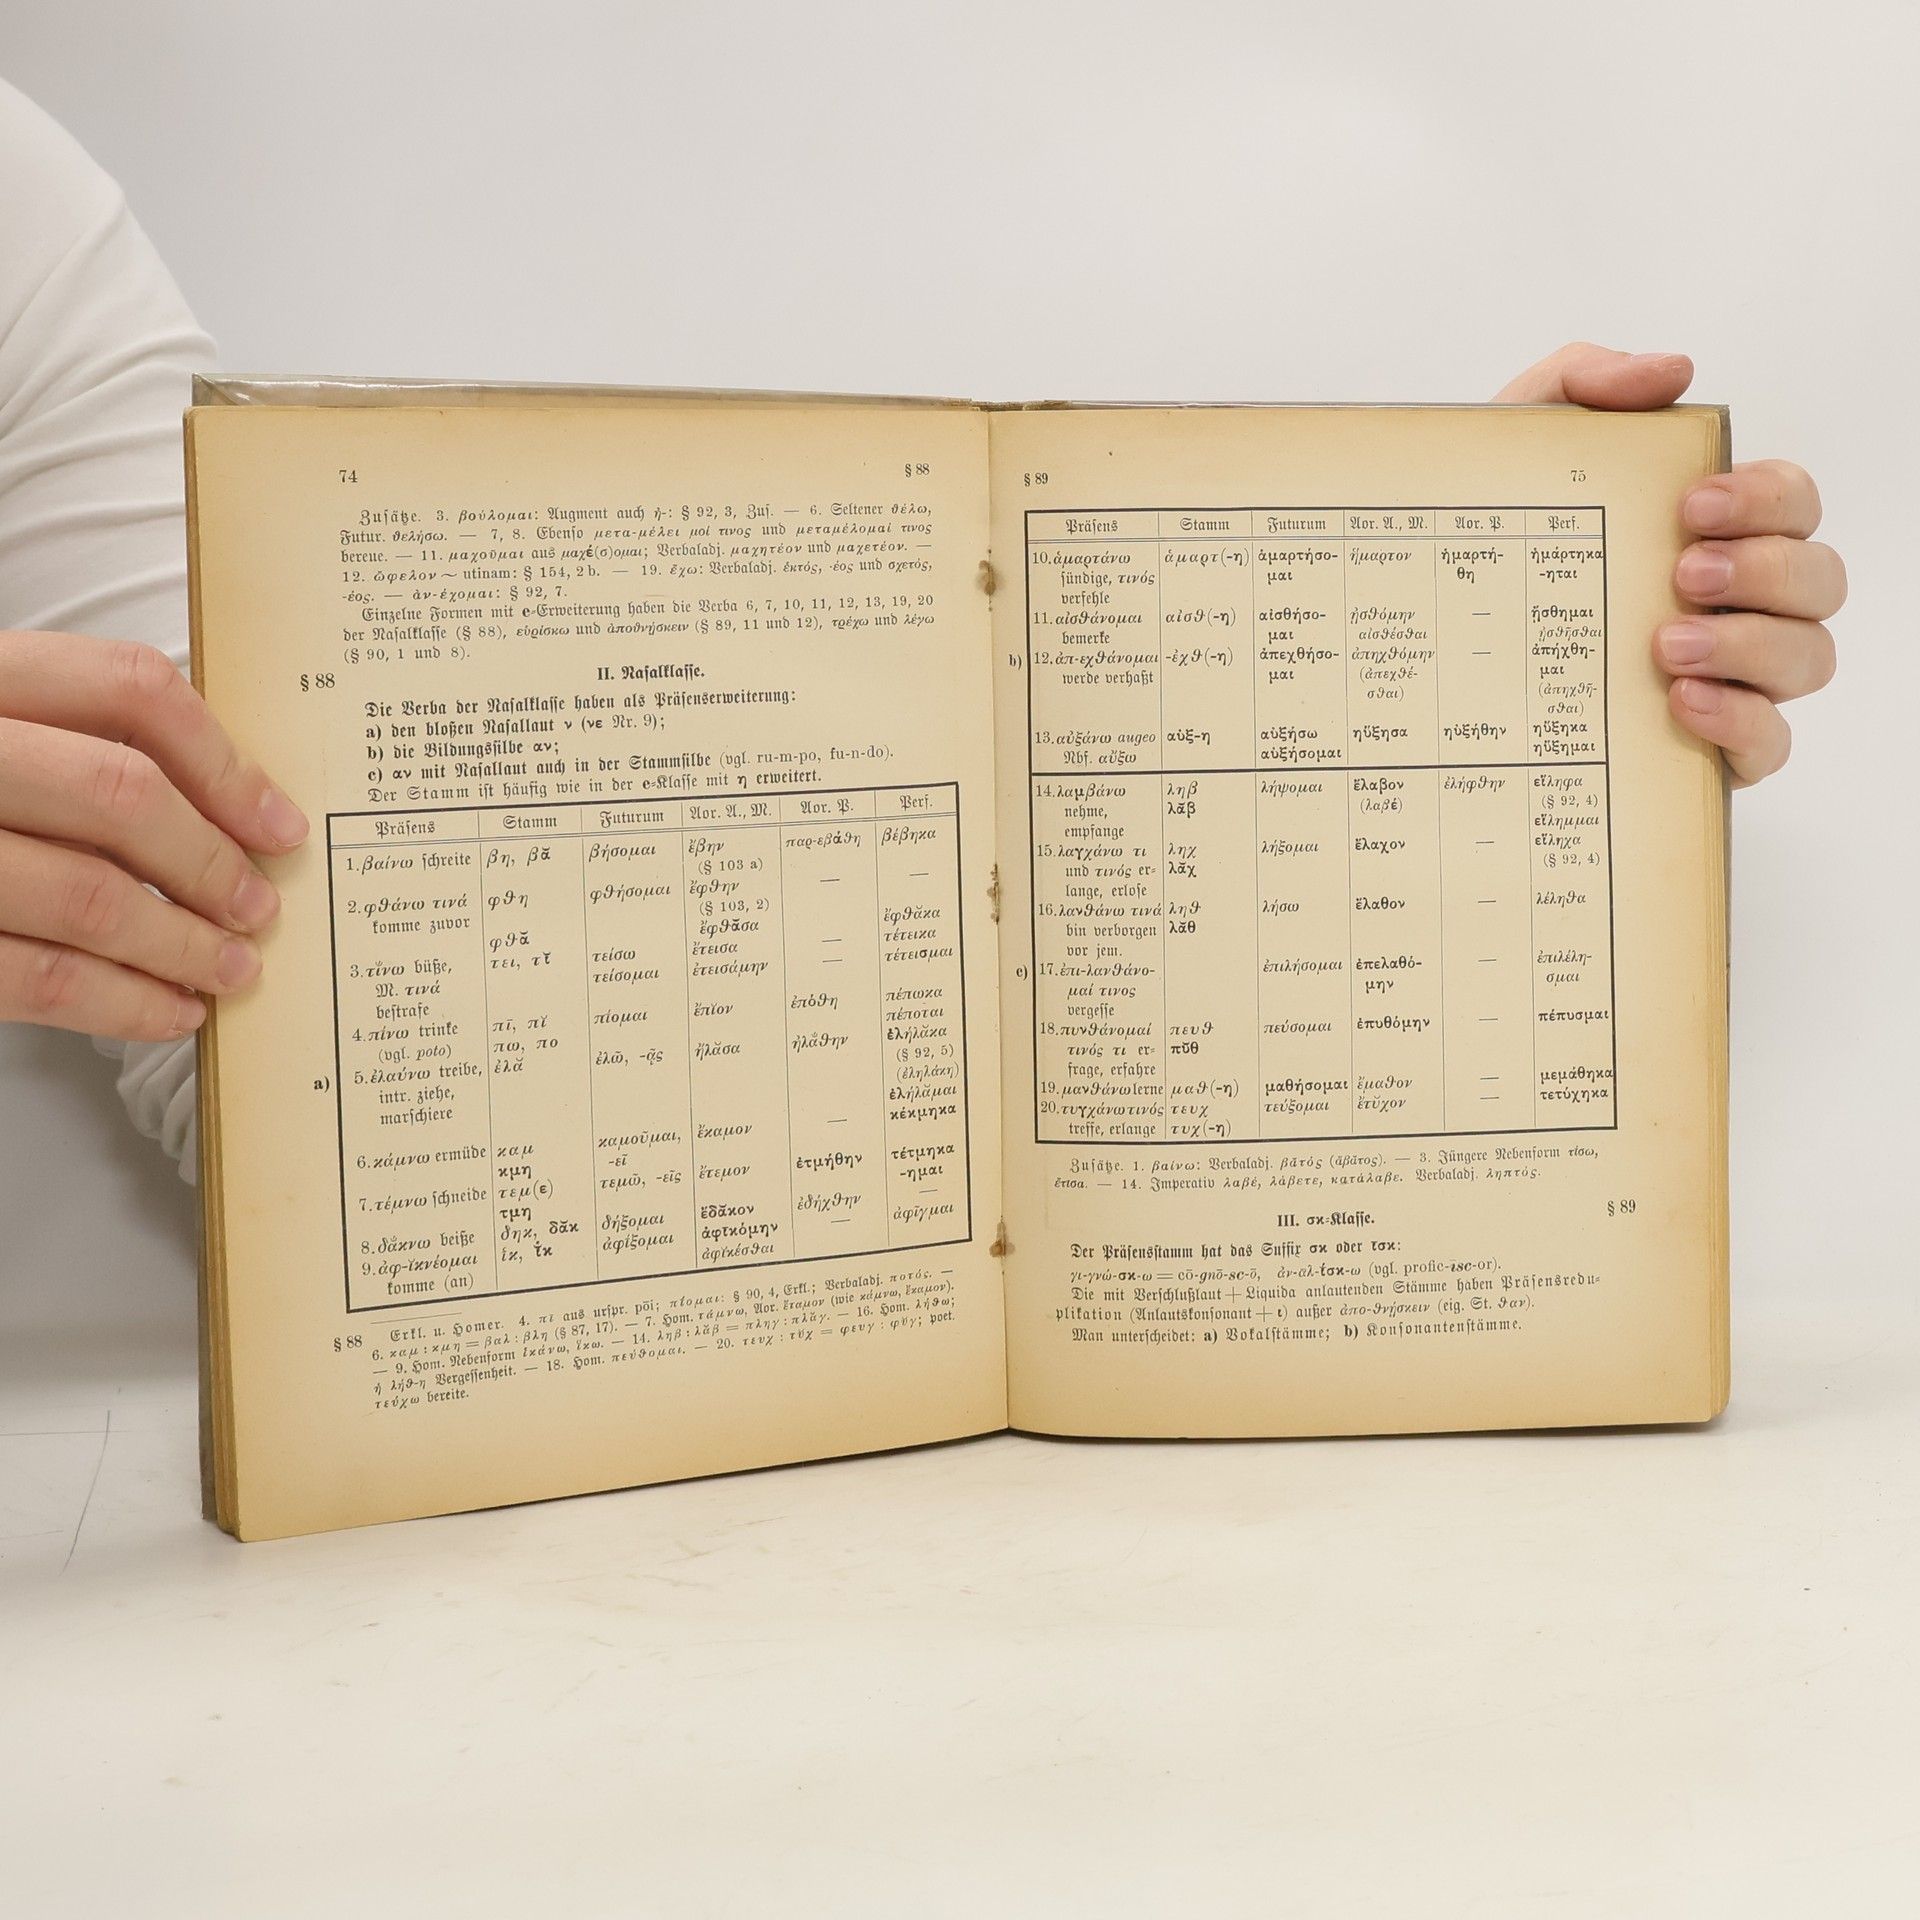 74 § 88
Zusätze. 3. βούλομαι: Augment auch ἠ-: § 92, 3, Zus. — 6. Seltener θέλω,
Futur. θελήσω. — 7, 8. Ebenso μετα-μέλει μοί τινος und μεταμέλομαί τινος
bereue. — 11. μαχοῦμαι aus μαχέ(σ)ομαι; Verbaladj. μαχητέον und μαχετέον. —
12. ὤφελον ~ utinam: § 154, 2 b. — 19. ἔχω: Verbaladj. ἑκτός, -έος und σχετός,
-έος. — ἀν-έχομαι: § 92, 7.
Einzelne Formen mit e-Erweiterung haben die Verba 6, 7, 10, 11, 12, 13, 19, 20
der Nasalklasse (§ 88), εὑρίσκω und ἀποθνῄσκειν (§ 89, 11 und 12), τρέχω und λέγω
(§ 90, 1 und 8).
§ 88 II. Nasalklasse.
Die Verba der Nasalklasse haben als Präsenserweiterung:
a) den bloßen Nasallaut ν (νε Nr. 9);
b) die Bildungssilbe αν;
c) αν mit Nasallaut auch in der Stammsilbe (vgl. ru-m-po, fu-n-do).
Der Stamm ist häufig wie in der e-Klasse mit η erweitert.
Präsens Stamm Futurum Aor. A., M. Aor. P. Perf.
1. βαίνω schreite βη, βᾰ βήσομαι ἔβην παρ-εβάθη βέβηκα
(§ 103 a)
2. φθάνω τινά φθη φθήσομαι ἔφθην — —
komme zuvor (§ 103, 2)
φθᾰ ἔφθᾰσα ἔφθᾰκα
3. τίνω büße, τει, τῐ τείσω ἔτεισα — τέτεικα
M. τινά τείσομαι ἐτεισάμην — τέτεισμαι
bestrafe
4. πίνω trinke πῑ, πῐ πίομαι ἔπῐον ἐπόθη πέπωκα
(vgl. poto) πω, πο πέποται
a) 5. ἐλαύνω treibe, ἐλᾰ ἐλῶ, -ᾷς ἤλᾰσα ἠλᾰ́θην ἐλήλᾰκα
intr. ziehe, (§ 92, 5)
marschiere (ἐληλάκη)
ἐλήλᾰμαι
6. κάμνω ermüde καμ καμοῦμαι, ἔκαμον — κέκμηκα
κμη -εῖ
7. τέμνω schneide τεμ(ε) τεμῶ, -εῖς ἔτεμον ἐτμήθην τέτμηκα
τμη -ημαι
8. δάκνω beiße δηκ, δᾰκ δήξομαι ἔδᾰκον ἐδήχθην —
9. ἀφ-ικνέομαι ἱκ, ἵκ ἀφίξομαι ἀφῑκόμην — ἀφῖγμαι
komme (an) ἀφῐκέσθαι
§ 88 Erkl. u. Homer. 4. πῑ aus urspr. pōi; πίομαι: § 90, 4, Erkl.; Verbaladj. ποτός. —
6. καμ : κμη = βαλ : βλη (§ 87, 17). — 7. Hom. τάμνω, Aor. ἔταμον (wie κάμνω, ἔκαμον).
— 9. Hom. Nebenform ἱκάνω, ἵκω. — 14. ληβ : λᾰβ = πληγ : πλᾰγ. — 16. Hom. λήθω;
ἡ λήθ-η Vergessenheit. — 18. Hom. πεύθομαι. — 20. τευχ : τῠχ = φευγ : φῠγ; poet.
τεύχω bereite.
§ 89 75
Präsens Stamm Futurum Aor. A., M. Aor. P. Perf.
10. ἁμαρτάνω ἁμαρτ(-η) ἁμαρτήσο- ἥμαρτον ἡμαρτή- ἡμάρτηκα
sündige, τινός μαι θη -ηται
verfehle
11. αἰσθάνομαι αἰσθ(-η) αἰσθήσο- ᾐσθόμην — ᾔσθημαι
bemerke μαι αἰσθέσθαι ᾐσθῆσθαι
b) 12. ἀπ-εχθάνομαι -ἐχθ(-η) ἀπεχθήσο- ἀπηχθόμην — ἀπήχθη-
werde verhaßt μαι (ἀπεχθέ- μαι
σθαι) (ἀπηχθῆ-
σθαι)
13. αὐξάνω augeo αὐξ-η αὐξήσω ηὔξησα ηὐξήθην ηὔξηκα
Nbf. αὔξω αὐξήσομαι ηὔξημαι
14. λαμβάνω ληβ λήψομαι ἔλαβον ἐλήφθην εἴληφα
nehme, λᾰβ (λαβέ) (§ 92, 4)
empfange εἴλημμαι
15. λαγχάνω τι ληχ λήξομαι ἔλαχον — εἴληχα
und τινός er- λᾰχ (§ 92, 4)
lange, erlose
16. λανθάνω τινά ληθ λήσω ἔλαθον — λέληθα
bin verborgen λᾰθ
vor jem.
c) 17. ἐπι-λανθάνο- ἐπιλήσομαι ἐπελαθό- — ἐπιλέλη-
μαί τινος μην σμαι
vergesse
18. πυνθάνομαί πευθ πεύσομαι ἐπυθόμην — πέπυσμαι
τινός τι er- πῠθ
frage, erfahre
19. μανθάνω lerne μαθ(-η) μαθήσομαι ἔμαθον — μεμάθηκα
20. τυγχάνω τινός τευχ τεύξομαι ἔτῠχον — τετύχηκα
treffe, erlange τυχ(-η)
Zusätze. 1. βαίνω: Verbaladj. βᾰτός (ἄβᾰτος). — 3. Jüngere Nebenform τίσω,
ἔτισα. — 14. Imperativ λαβέ, λάβετε, κατάλαβε. Verbaladj. ληπτός.
III. σκ-Klasse. § 89
Der Präsensstamm hat das Suffix σκ oder ισκ:
γι-γνώ-σκ-ω = cō-gnō-sc-ō, ἀν-ᾱλ-ίσκ-ω (vgl. profic-isc-or).
Die mit Verschlußlaut + Liquida anlautenden Stämme haben Präsensredu-
plikation (Anlautskonsonant + ι) außer ἀπο-θνῄσκειν (eig. St. θαν).
Man unterscheidet: a) Vokalstämme; b) Konsonantenstämme.